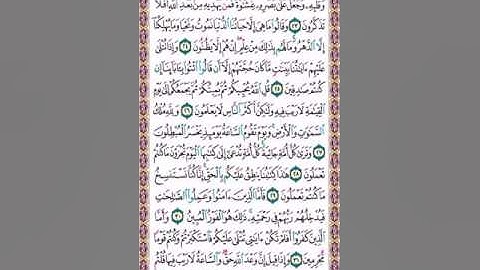 وَقَلْبِهِۦ وَجَعَلَ عَلَىٰ بَصَرِهِۦ غِشَٰوَةً فَمَن يَهْدِيهِ مِنۢ بَعْدِ ٱللَّهِ أَفَلَا
تَذَكَّرُونَ ٢٣ وَقَالُوا۟ مَا هِىَ إِلَّا حَيَاتُنَا ٱلدُّنْيَا نَمُوتُ وَنَحْيَا وَمَا يُهْلِكُنَآ
إِلَّا ٱلدَّهْرُ وَمَا لَهُم بِذَٰلِكَ مِنْ عِلْمٍ إِنْ هُمْ إِلَّا يَظُنُّونَ ٢٤ وَإِذَا تُتْلَىٰ
عَلَيْهِمْ ءَايَٰتُنَا بَيِّنَٰتٍ مَّا كَانَ حُجَّتَهُمْ إِلَّآ أَن قَالُوا۟ ٱئْتُوا۟ بِـَٔابَآئِنَآ إِن
كُنتُمْ صَٰدِقِينَ ٢٥ قُلِ ٱللَّهُ يُحْيِيكُمْ ثُمَّ يُمِيتُكُمْ ثُمَّ يَجْمَعُكُمْ إِلَىٰ يَوْمِ
ٱلْقِيَٰمَةِ لَا رَيْبَ فِيهِ وَلَٰكِنَّ أَكْثَرَ ٱلنَّاسِ لَا يَعْلَمُونَ ٢٦ وَلِلَّهِ مُلْكُ
ٱلسَّمَٰوَٰتِ وَٱلْأَرْضِ وَيَوْمَ تَقُومُ ٱلسَّاعَةُ يَوْمَئِذٍ يَخْسَرُ ٱلْمُبْطِلُونَ
٢٧ وَتَرَىٰ كُلَّ أُمَّةٍ جَاثِيَةً كُلُّ أُمَّةٍ تُدْعَىٰٓ إِلَىٰ كِتَٰبِهَا ٱلْيَوْمَ تُجْزَوْنَ مَا كُنتُمْ
تَعْمَلُونَ ٢٨ هَٰذَا كِتَٰبُنَا يَنطِقُ عَلَيْكُم بِٱلْحَقِّ إِنَّا كُنَّا نَسْتَنسِخُ
مَا كُنتُمْ تَعْمَلُونَ ٢٩ فَأَمَّا ٱلَّذِينَ ءَامَنُوا۟ وَعَمِلُوا۟ ٱلصَّٰلِحَٰتِ
فَيُدْخِلُهُمْ رَبُّهُمْ فِى رَحْمَتِهِۦ ذَٰلِكَ هُوَ ٱلْفَوْزُ ٱلْمُبِينُ ٣٠ وَأَمَّا
ٱلَّذِينَ كَفَرُوٓا۟ أَفَلَمْ تَكُنْ ءَايَٰتِى تُتْلَىٰ عَلَيْكُمْ فَٱسْتَكْبَرْتُمْ وَكُنتُمْ قَوْمًا
مُّجْرِمِينَ ٣١ وَإِذَا قِيلَ إِنَّ وَعْدَ ٱللَّهِ حَقٌّ وَٱلسَّاعَةُ لَا رَيْبَ فِيهَا قُلْتُم